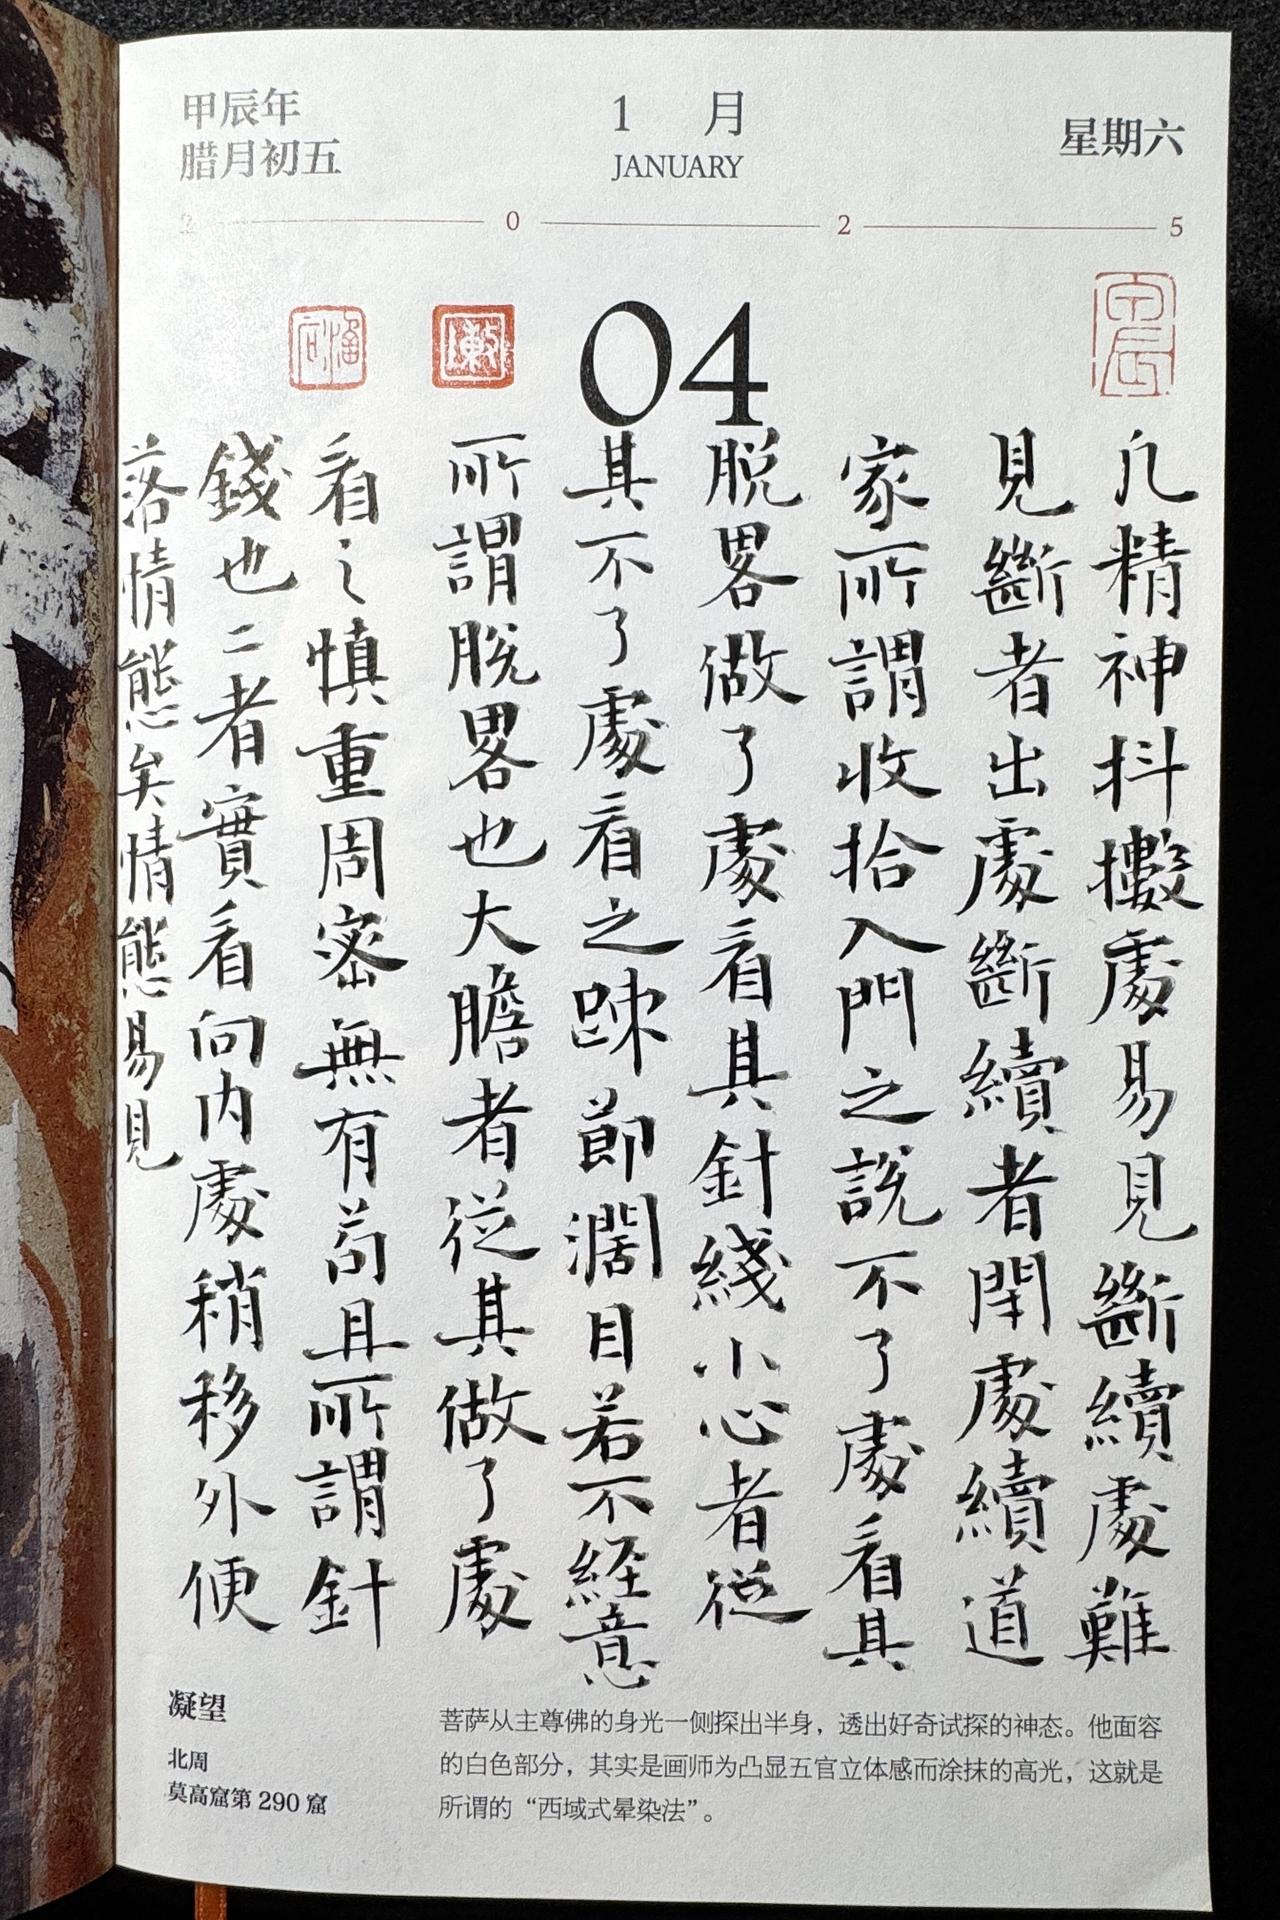 甲辰年
腊月初五
1月
JANUARY
星期六
2 0 2 5
04
凡精神抖擻處易見斷續處難
見斷者出處斷續者閇處續道
家所謂收拾入門之說不了處看其
脱畧做了處看其針綫小心者從
其不了處看之踈節濶目若不經意
所謂脫畧也大膽者從其做了處
看之慎重周密無有苟且所謂針
錢也二者實看向内處稍移外便
落情態矣情態易見
凝望
北周
莫高窟第 290 窟
菩萨从主尊佛的身光一侧探出半身，透出好奇试探的神态。他面容
的白色部分，其实是画师为凸显五官立体感而涂抹的高光，这就是
所谓的“西域式晕染法”。